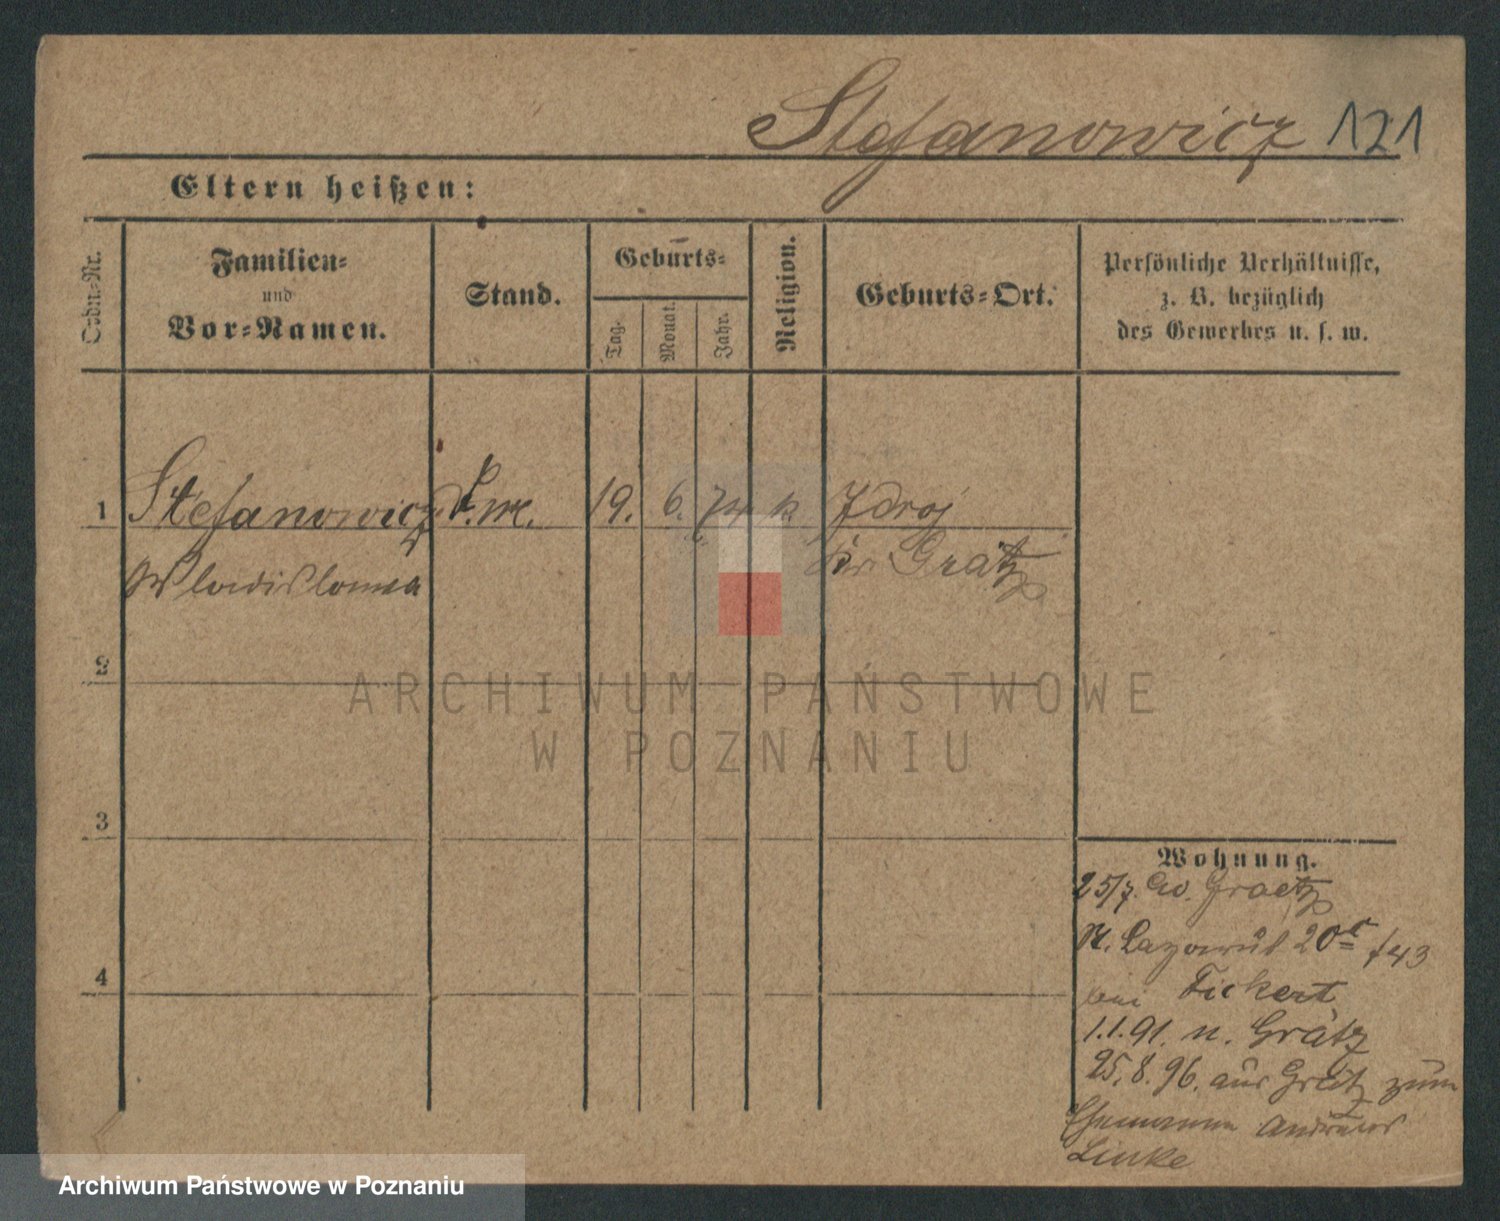 Stefanowicz 121
Eltern heißen:
Ordn.-Nr.
Familien-
und
Vor-Namen.
Stand.
Geburts-
Tag.
Monat.
Jahr.
Religion.
Geburts-Ort.
Persönliche Verhältnisse,
z. B. bezüglich
des Gewerbes u. s. w.
1 Stefanowicz 19. 6. 74 k Zdroj
Wladislawa Kr. Grätz
2
3
4
Wohnung.
25/7. Graetz
20 143
bei Fickert
1.1.91. n. Grätz
25.8.96. aus Grätz zum
Ehemann Andreas
Linke
ARCHIWUM PAŃSTWOWE
W POZNANIU
Archiwum Państwowe w Poznaniu